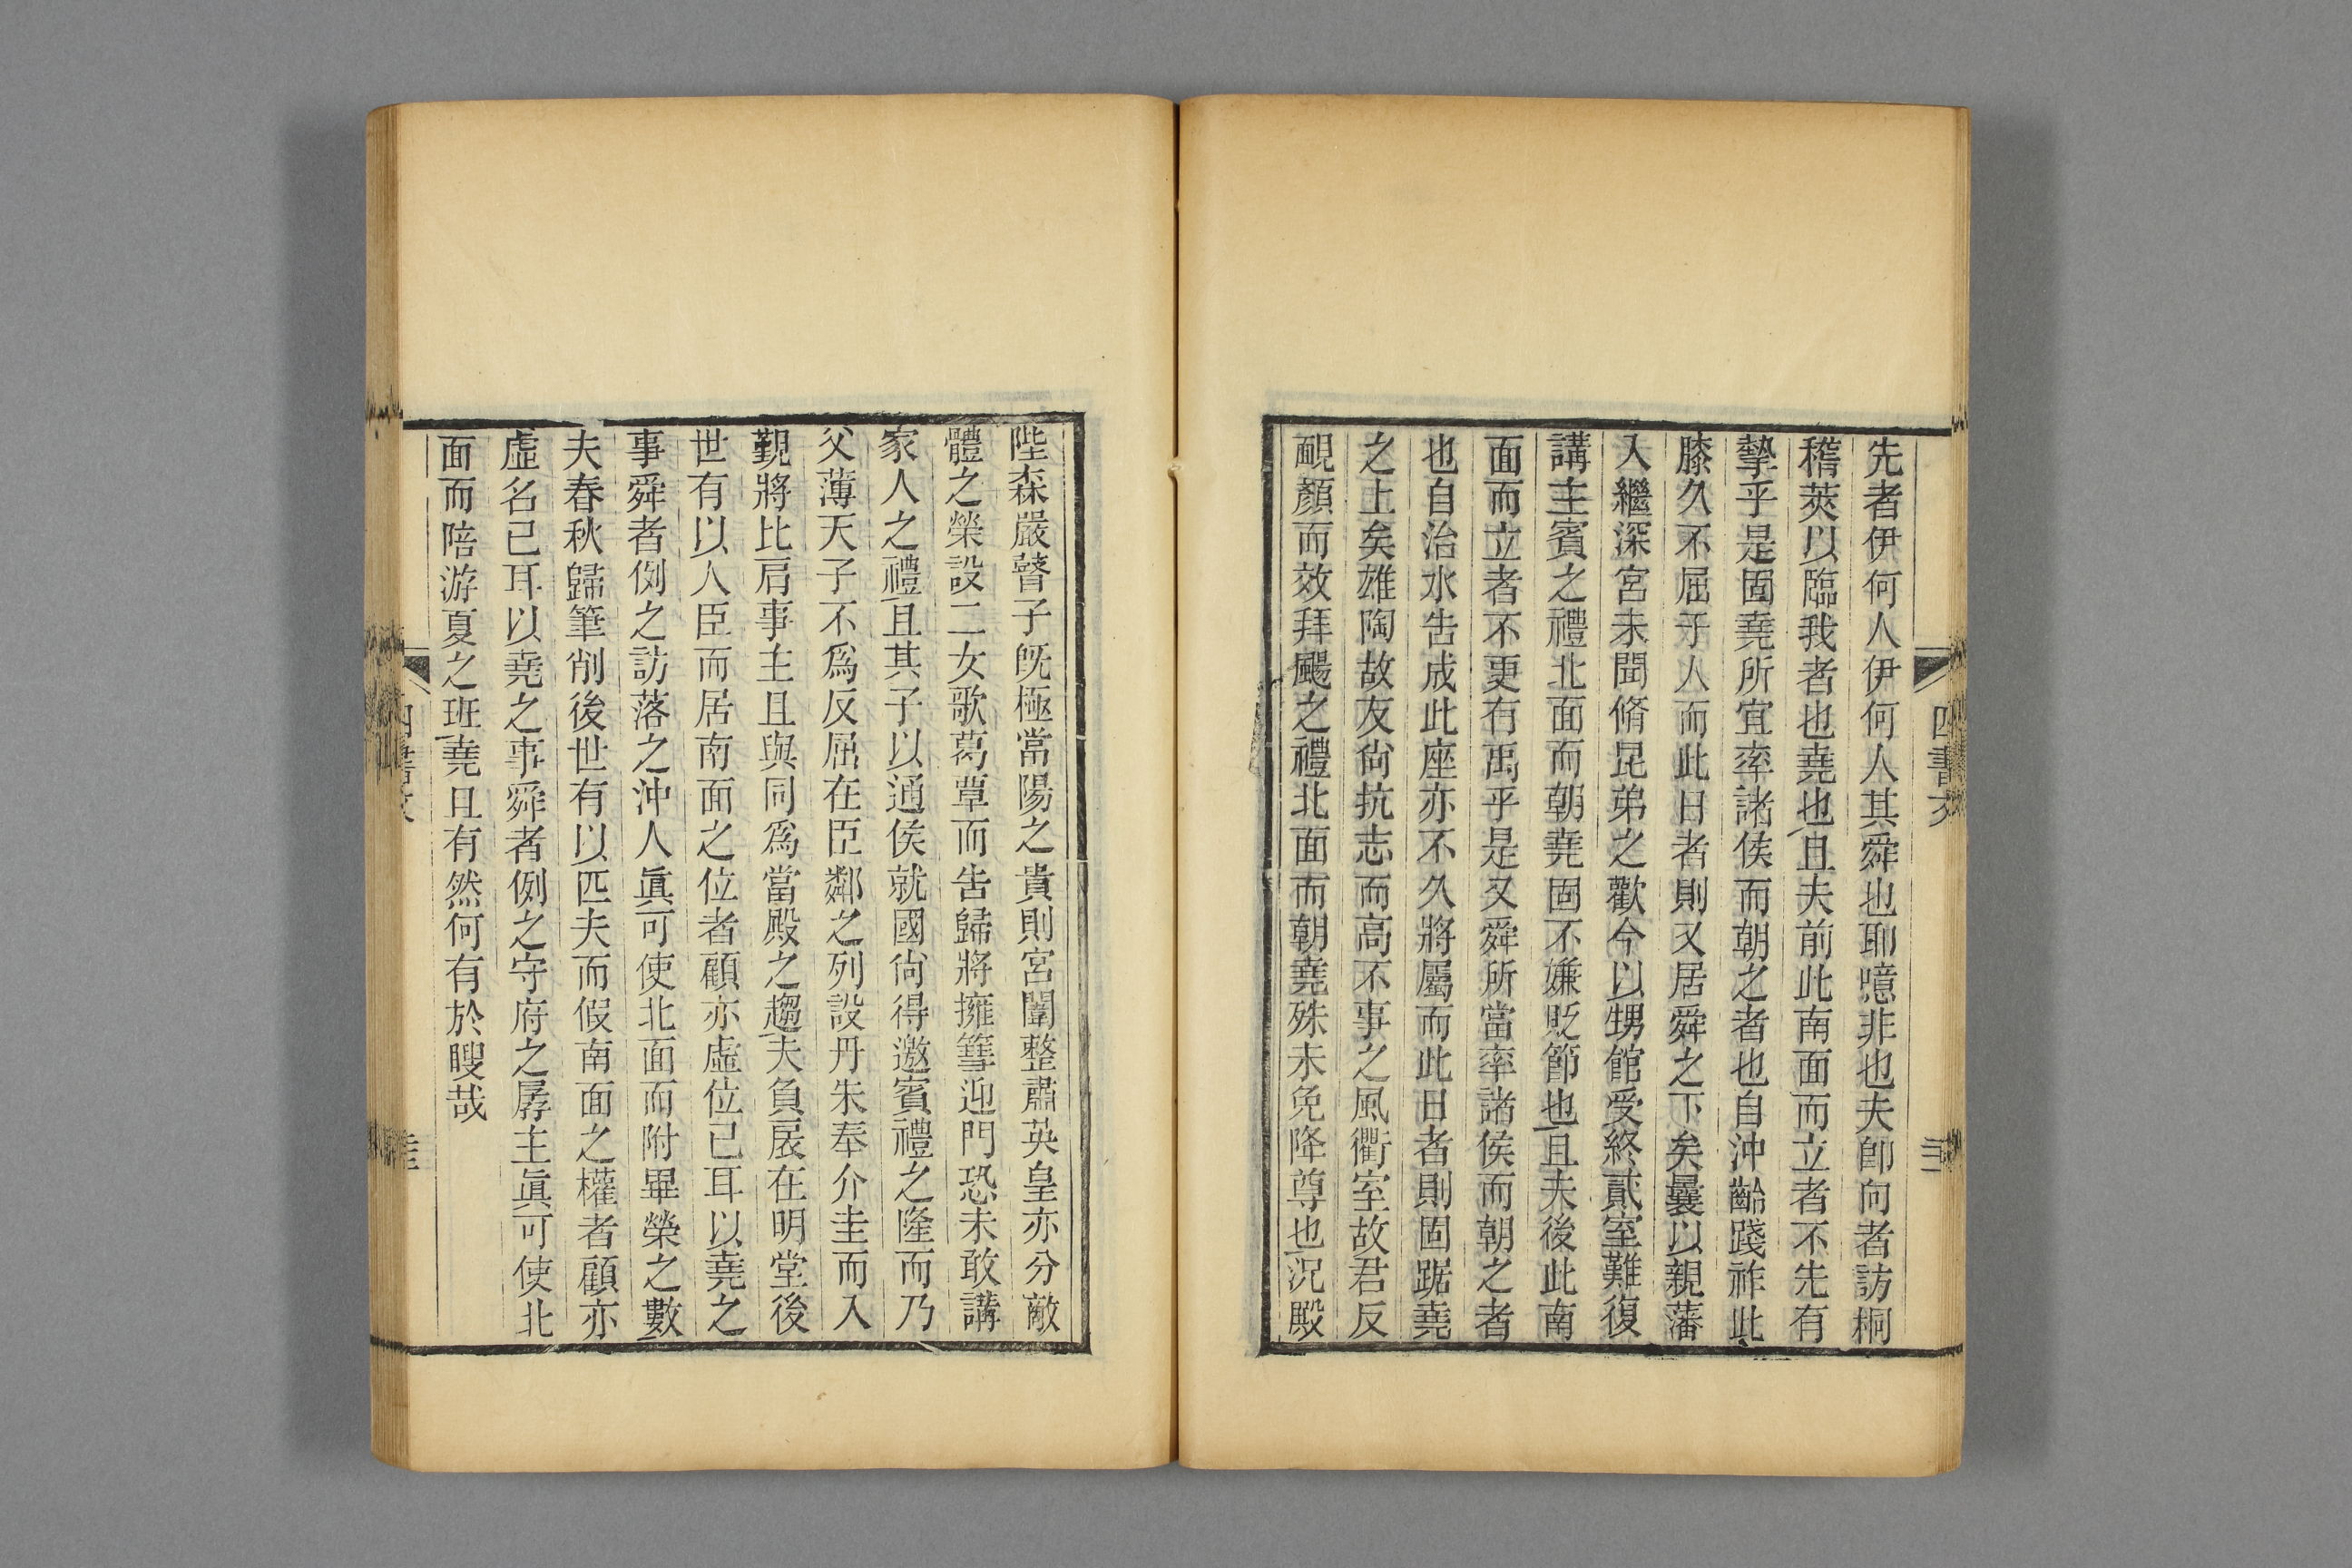 先者伊何人伊何人其舜也耶噫非也夫卽向者訪桐
稽蓂以臨我者也堯也且夫前此南面而立者不先有
摯乎是固堯所宜率諸侯而朝之者也自沖齡踐祚此
膝久不屈于人而此日者則又居舜之下矣曩以親藩
入繼深宮未聞脩昆弟之歡今以甥館受終貳室難復
講主賓之禮北面而朝堯固不嫌貶節也且夫後此南
面而立者不更有禹乎是又舜所當率諸侯而朝之者
也自治水告成此座亦不久將屬而此日者則固踞堯
之上矣雄陶故友尙抗志而高不事之風衢室故君反
靦顏而效拜颺之禮北面而朝堯殊未免降尊也況殿
陛森嚴瞽子旣極當陽之貴則宮闈整肅英皇亦分敵
體之榮設二女歌葛覃而告歸將擁篲迎門恐未敢講
家人之禮且其子以通侯就國尙得邀賓禮之隆而乃
父薄天子不爲反屈在臣鄰之列設丹朱奉介圭而入
覲將比肩事主且與同爲當殿之趨夫負扆在明堂後
世有以人臣而居南面之位者顧亦虛位已耳以堯之
事舜者例之訪落之沖人眞可使北面而附畢榮之數
夫春秋歸筆削後世有以匹夫而假南面之權者顧亦
虛名已耳以堯之事舜者例之守府之孱主眞可使北
面而陪游夏之班堯且有然何有於瞍哉
四書文